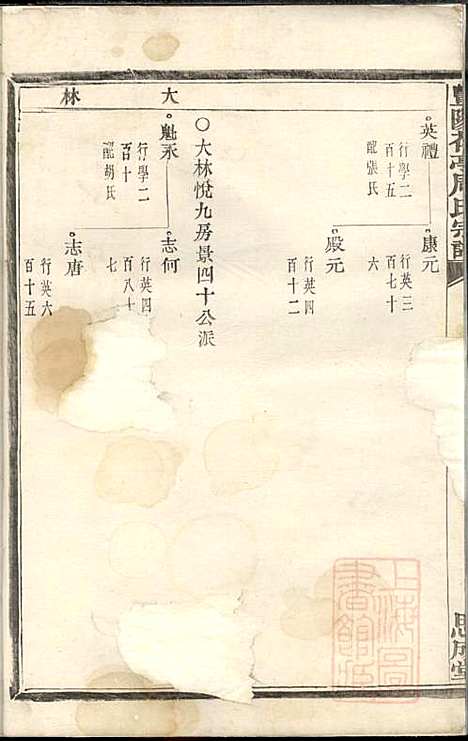 大林
英禮
行學二
百十五
配張氏
康元
行英三
百七十
六
殷元
行英四
百十二
○大林悅九房景四十公派
魁永
行學二
百十
配胡氏
志何
行英四
百八十
七
志唐
行英六
百十五
周氏宗譜
思成堂
上海圖
書館藏